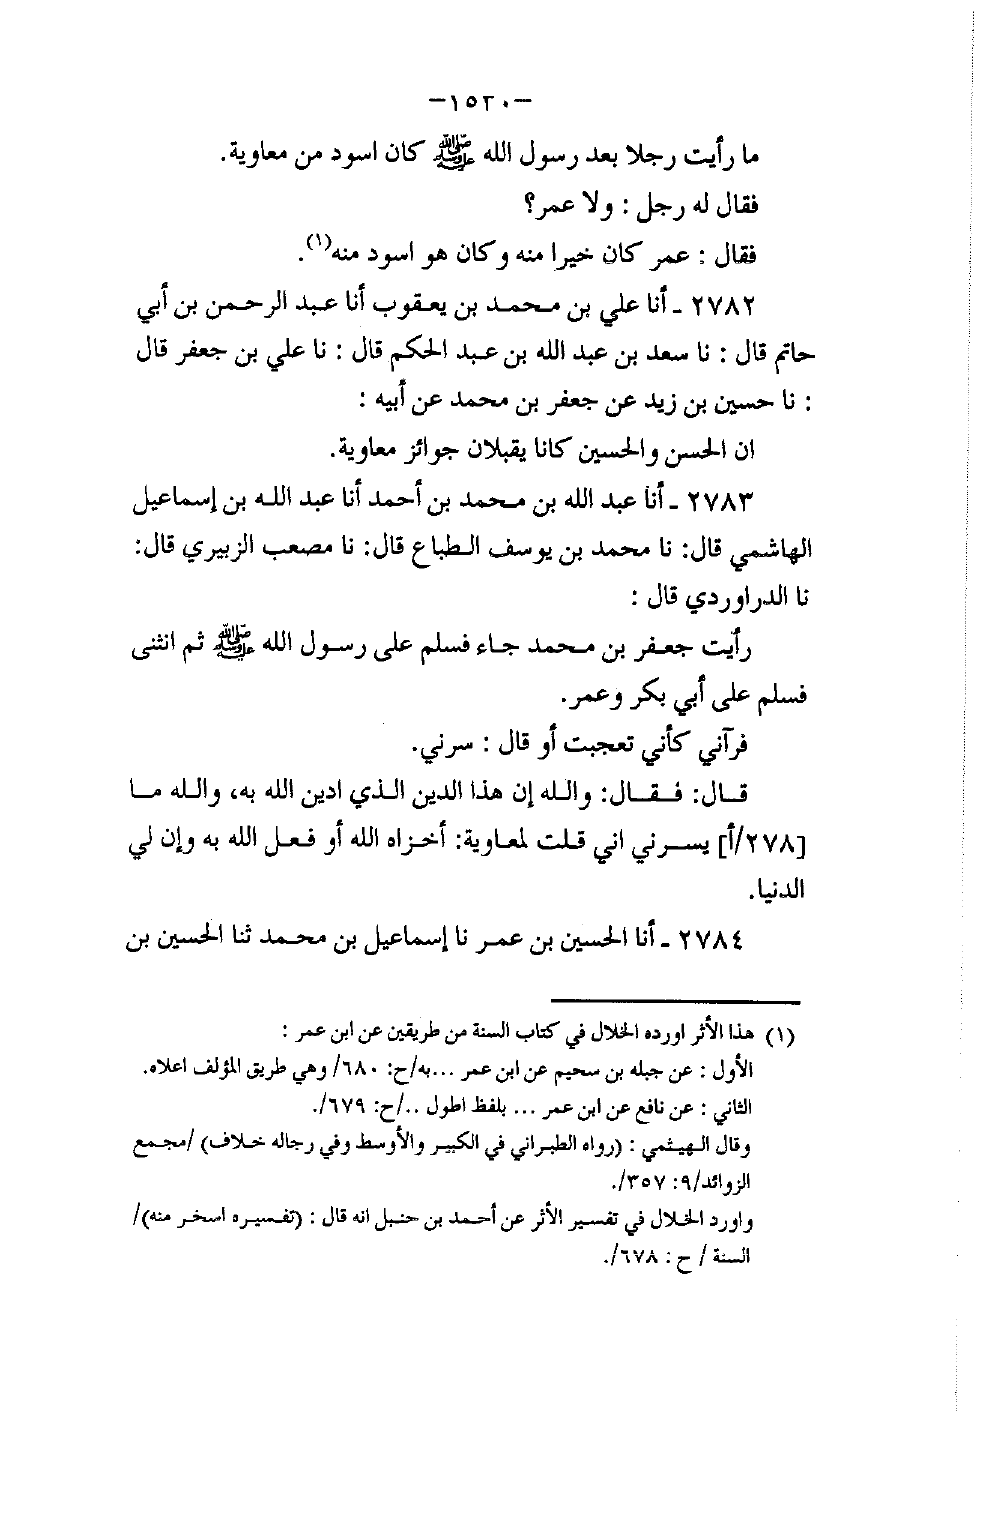 -١٥٣٠-
ما رأيت رجلا بعد رسول الله ﷺ كان اسود من معاوية.
فقال له رجل : ولا عمر؟
فقال : عمر كان خيرا منه وكان هو اسود منه(١).
٢٧٨٢ ـ أنا علي بن محمد بن يعقوب أنا عبد الرحمن بن أبي
حاتم قال : نا سعد بن عبد الله بن عبد الحكم قال : نا علي بن جعفر قال
: نا حسين بن زيد عن جعفر بن محمد عن أبيه :
ان الحسن والحسين كانا يقبلان جوائز معاوية.
٢٧٨٣ ـ أنا عبد الله بن محمد بن أحمد أنا عبد الله بن إسماعيل
الهاشمي قال: نا محمد بن يوسف الطباع قال: نا مصعب الزبيري قال:
نا الدراوردي قال :
رأيت جعفر بن محمد جاء فسلم على رسول الله ﷺ ثم انثنى
فسلم على أبي بكر وعمر.
فرآني كأني تعجبت أو قال : سرني.
قال: فقال: والله إن هذا الدين الذي ادين الله به، والله ما
[٢٧٨/أ] يسرني اني قلت لمعاوية: أخزاه الله أو فعل الله به وإن لي
الدنيا.
٢٧٨٤ ـ أنا الحسين بن عمر نا إسماعيل بن محمد ثنا الحسين بن
(١) هذا الأثر اورده الخلال في كتاب السنة من طريقين عن ابن عمر :
الأول : عن جبله بن سحيم عن ابن عمر ...به/ح: ٦٨٠/ وهي طريق المؤلف اعلاه.
الثاني : عن نافع عن ابن عمر ... بلفظ اطول ../ح: ٦٧٩/.
وقال الهيثمي : (رواه الطبراني في الكبير والأوسط وفي رجاله خلاف) /مجمع
الزوائد/٩: ٣٥٧/.
واورد الخلال في تفسير الأثر عن أحمد بن حنبل انه قال : (تفسيره اسخر منه)/
السنة / ح : ٦٧٨/.